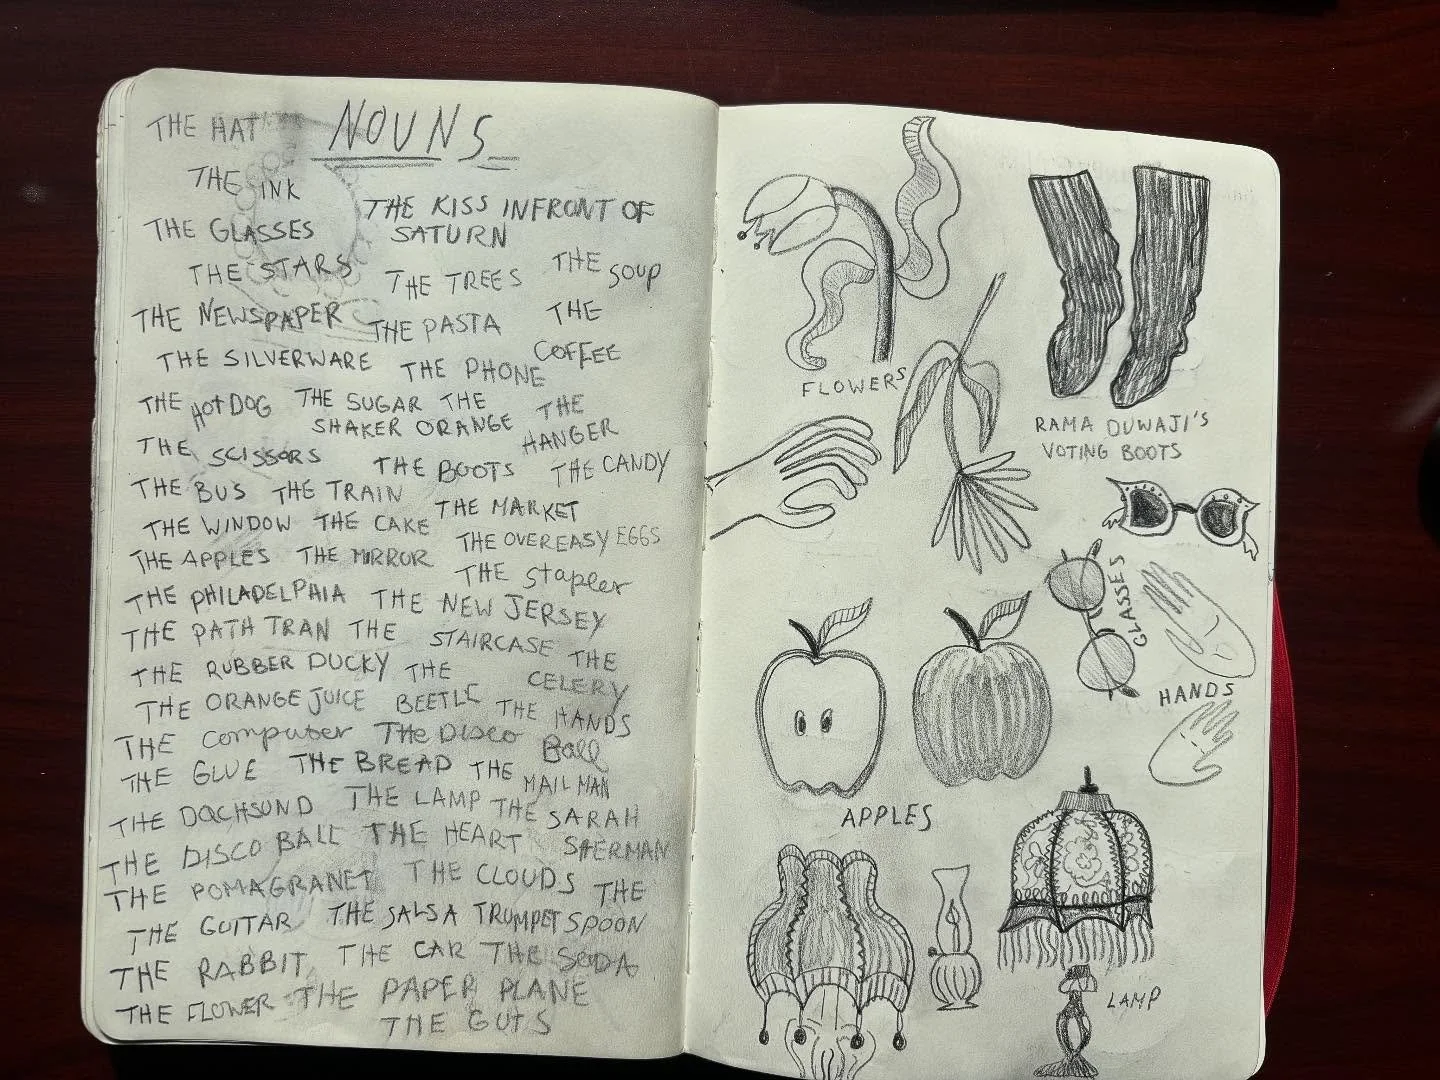 THE HAT NOUNS
THE INK
THE KISS INFRONT OF
SATURN
THE GLASSES
THE STARS THE TREES THE SOUP
THE NEWSPAPER THE PASTA THE
COFFEE
THE SILVERWARE THE PHONE
THE HOTDOG THE SUGAR THE THE
SHAKER ORANGE HANGER
THE SCISSORS THE BOOTS THE CANDY
THE BUS THE TRAIN THE MARKET
THE WINDOW THE CAKE
THE APPLES THE MIRROR THE OVEREASY EGGS
THE stapler
THE PHILADELPHIA THE NEW JERSEY
THE PATH TRAN THE STAIRCASE THE
THE RUBBER DUCKY THE CELERY
THE ORANGE JUICE BEETLE THE HANDS
THE computer THE DISCO Ball
THE GLUE THE BREAD THE MAIL MAN
THE DACHSUND THE LAMP THE SARAH
THE DISCO BALL THE HEART SHERMAN
THE POMAGRANET THE CLOUDS THE
THE GUITAR THE SALSA TRUMPET SPOON
THE RABBIT THE CAR THE SODA
THE FLOWER THE PAPER PLANE
THE GUTS
FLOWERS
RAMA DUWAJI'S
VOTING BOOTS
GLASSES
HANDS
APPLES
LAMP